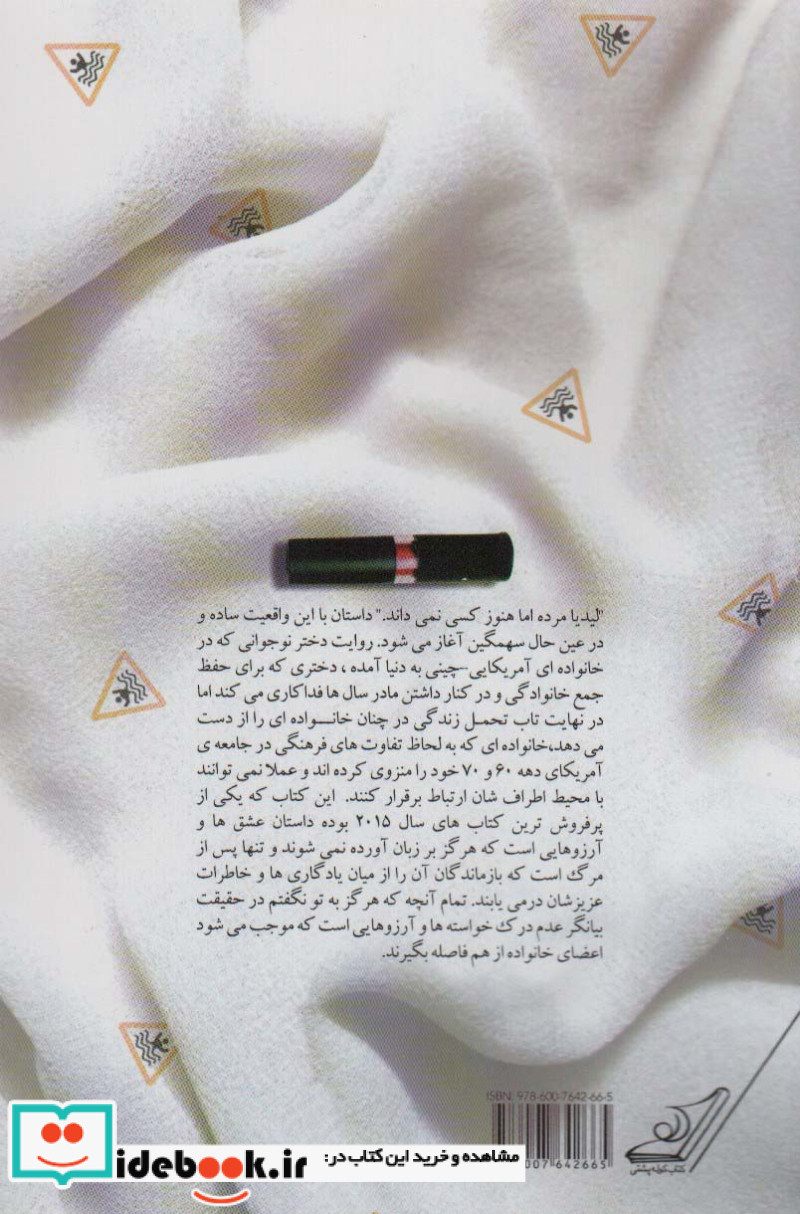 "لیدیا مرده اما هنوز کسی نمی داند." داستان با این واقعیت ساده و
در عین حال سهمگین آغاز می شود. روایت دختر نوجوانی که در
خانواده ای آمریکایی-چینی به دنیا آمده ، دختری که برای حفظ
جمع خانوادگی و در کنار داشتن مادر سال ها فداکاری می کند اما
در نهایت تاب تحمل زندگی در چنان خانواده ای را از دست
می دهد،خانواده ای که به لحاظ تفاوت های فرهنگی در جامعه ی
آمریکای دهه ۶۰ و ۷۰ خود را منزوی کرده اند و عملا نمی توانند
با محیط اطراف شان ارتباط برقرار کنند. این کتاب که یکی از
پرفروش ترین کتاب های سال ۲۰۱۵ بوده داستان عشق ها و
آرزوهایی است که هرگز بر زبان آورده نمی شوند و تنها پس از
مرگ است که بازماندگان آن را از میان یادگاری ها و خاطرات
عزیزشان درمی یابند. تمام آنچه که هرگز به تو نگفتم در حقیقت
بیانگر عدم درک خواسته ها و آرزوهایی است که موجب می شود
اعضای خانواده از هم فاصله بگیرند.
ISBN: 978-600-7642-66-5
007642665
کتاب کوله پشتی
مشاهده و خرید این کتاب در:
idebook.ir